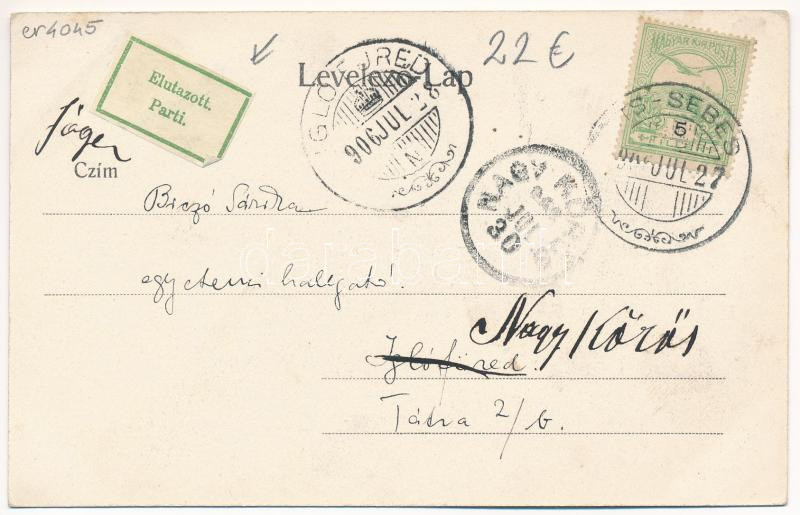 cr4045
22 €
Elutazott.
Parti.
IGLÓFÜRED
906 JUL 28
Levelező-Lap
MAGYAR KIR. POSTA
5
-SEBES
906 JUL 27
Jáger
Czím
NAGY KŐRÖS
906
JUL
30
Biczó Sárika
egyetemi hallgató.
Nagy Kőrös
Iglófüred.
Tátra 2/b.
darabanth